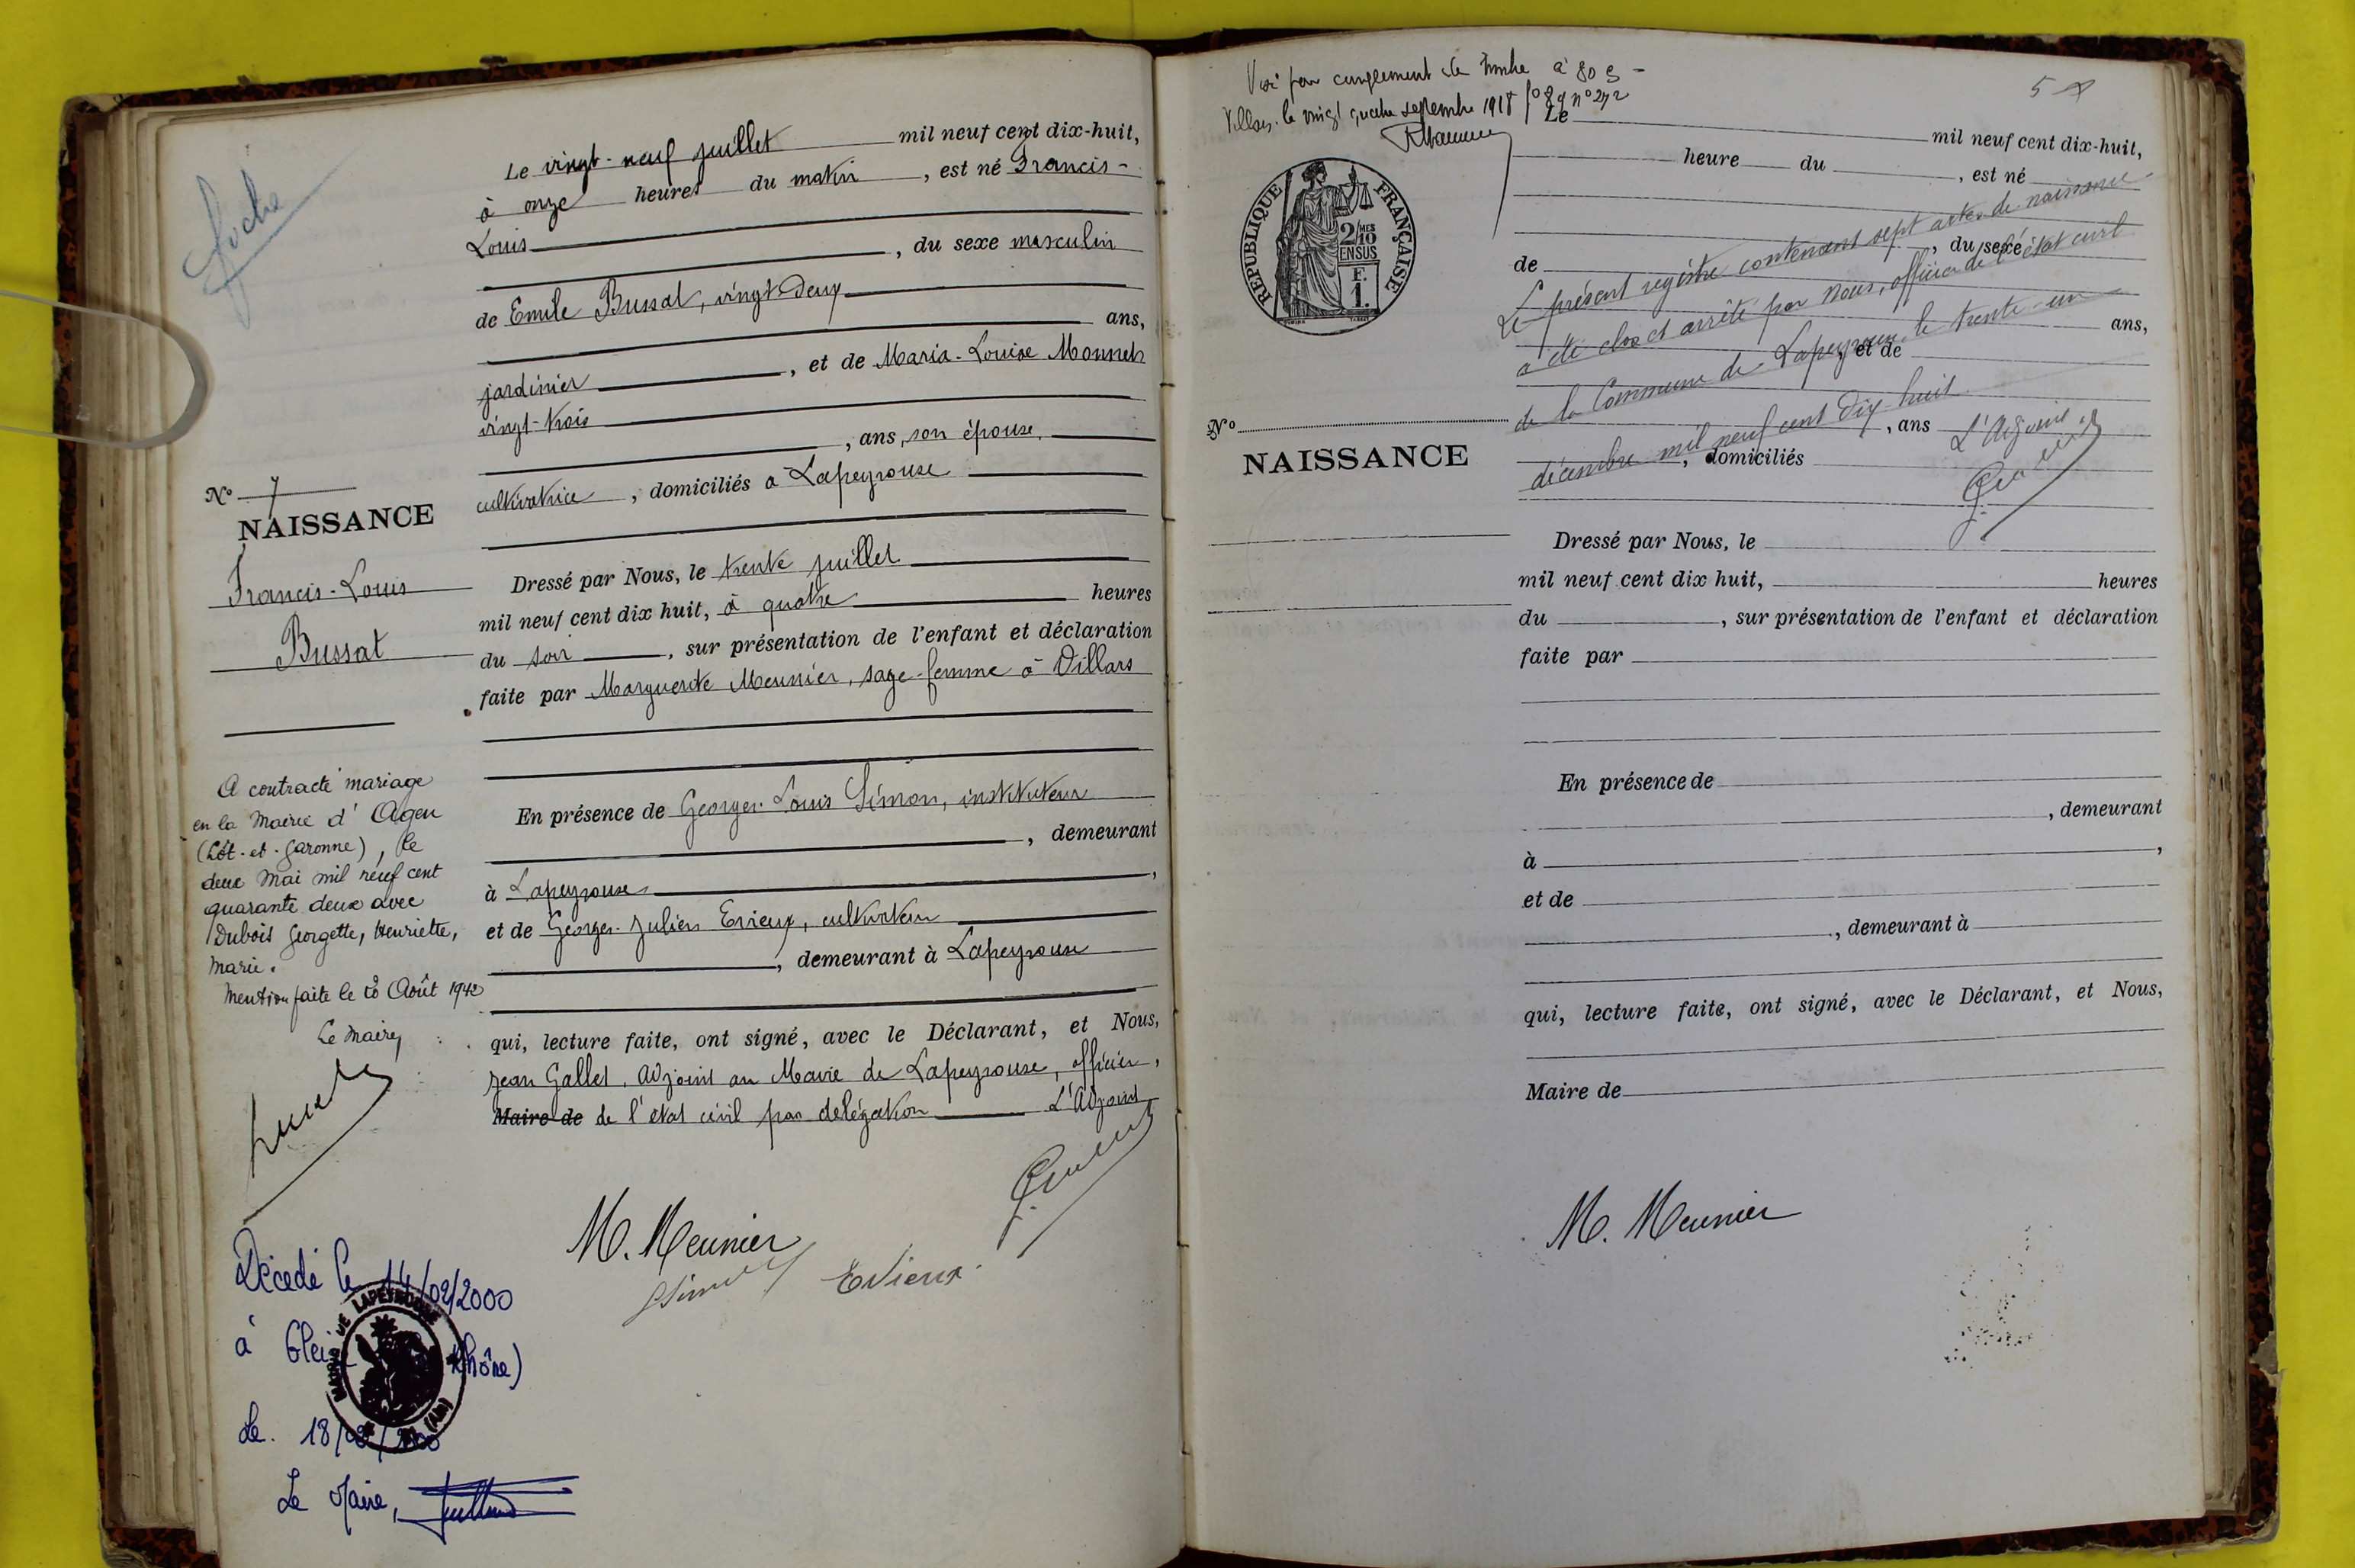 Le vingt-neuf juillet mil neuf cent dix-huit,
à onze heures du matin, est né Francis-
Louis, du sexe masculin
de Emile Bussat, vingt-deux
ans,
jardinier, et de Maria-Louise Monnet
vingt-trois
, ans, son épouse,
cultivatrice, domiciliés à Lapeyrouse
Dressé par Nous, le trente juillet
mil neuf cent dix huit, à quatre heures
du soir, sur présentation de l'enfant et déclaration
faite par Marguerite Meunier, sage-femme à Villars
En présence de Georges-Louis Simon, instituteur
, demeurant
à Lapeyrouse,
et de Georges-Julien Evieux, cultivateur
, demeurant à Lapeyrouse
qui, lecture faite, ont signé, avec le Déclarant, et Nous,
Jean Gallet, Adjoint au Maire de Lapeyrouse, officier,
Maire de de l'état civil par délégation L'Adjoint
M. Meunier
Simon
Evieux
Nº 7
NAISSANCE
Francis-Louis
Bussat
A contracté mariage
en la Mairie d'Agen
(Lot-et-Garonne), le
deux Mai mil neuf cent
quarante deux avec
Dubois Georgette, Henriette,
Marie.
Mention faite le Août 1942
Le Maire,
Décédé le 14/02/2000
à (Rhône)
MAIRIE DE LAPEYROUSE
(Ain)
Le 18/02/2000
Le Maire,
Visé pour complément de timbre à 80 c
Villars, le vingt quatre septembre 1918 fº 89 nº 272
5
REPUBLIQUE FRANÇAISE
2/10 MES
EN SUS
F.
1.
Le mil neuf cent dix-huit,
heure du, est né
, du sexe
de
ans,
, et de
, ans
, domiciliés
Le présent registre contenant sept actes de naissance
a été clos et arrêté par Nous, officier de l'état civil
de la Commune de Lapeyrouse le trente-un
décembre mil neuf cent dix-huit
L'Adjoint
Nº
NAISSANCE
Dressé par Nous, le
mil neuf cent dix huit, heures
du, sur présentation de l'enfant et déclaration
faite par
En présence de
, demeurant
à,
et de
, demeurant à
qui, lecture faite, ont signé, avec le Déclarant, et Nous,
Maire de
M. Meunier